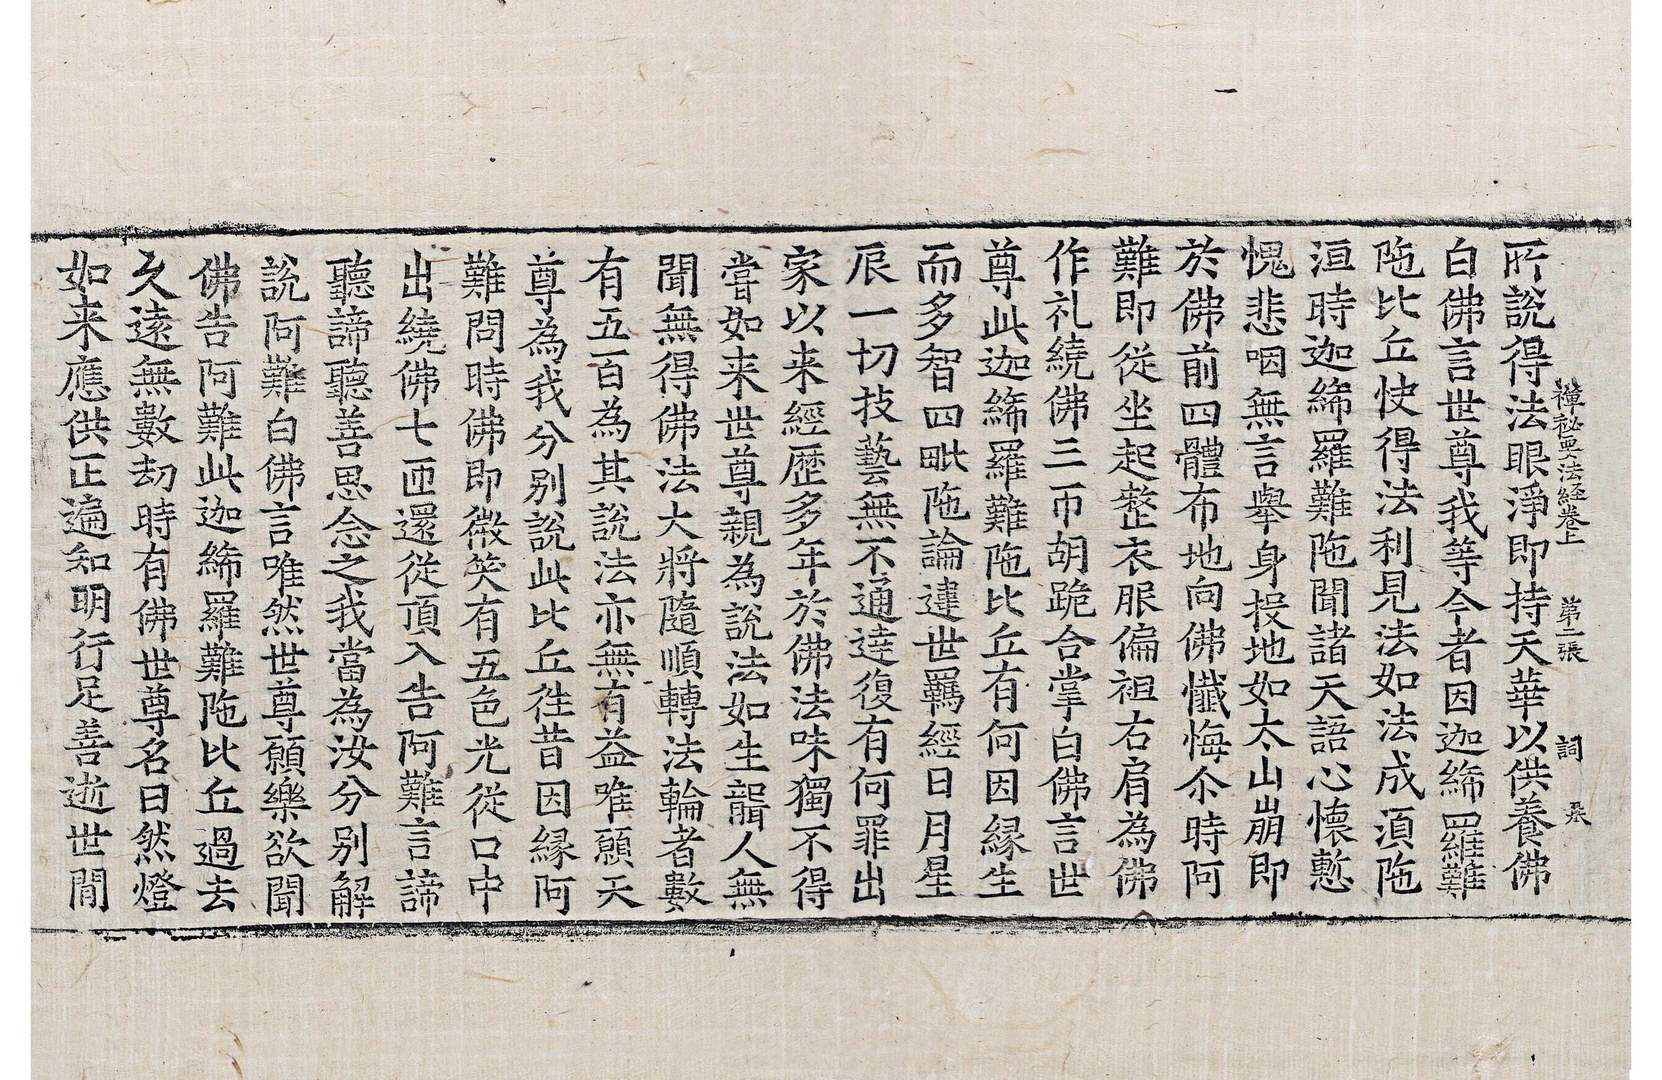 禪秘要法經卷上 第二張 詞
所說得法眼淨即持天華以供養佛
白佛言世尊我等今者因迦絺羅難
陁比丘快得法利見法如法成湏陁
洹時迦絺羅難陁聞諸天語心懷慙
愧悲咽無言舉身投地如太山崩即
於佛前四體布地向佛懺悔尒時阿
難即從坐起整衣服偏袒右肩為佛
作礼繞佛三帀胡跪合掌白佛言世
尊此迦絺羅難陁比丘有何因緣生
而多智四毗陁論違世羈經日月星
辰一切技藝無不通達復有何罪出
家以来經歷多年於佛法味獨不得
嘗如来世尊親為說法如生聾人無
聞無得佛法大將隨順轉法輪者數
有五百為其說法亦無有益唯願天
尊為我分別說此比丘徃昔因緣阿
難問時佛即微笑有五色光從口中
出繞佛七匝還從頂入告阿難言諦
聽諦聽善思念之我當為汝分別解
說阿難白佛言唯然世尊願樂欲聞
佛告阿難此迦絺羅難陁比丘過去
久遠無數劫時有佛世尊名曰然燈
如来應供正遍知明行足善逝世閒